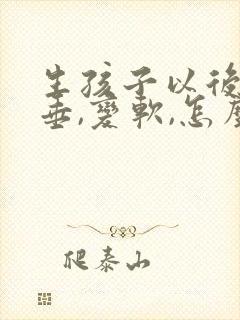 生孩子以後
垂,愛軟,怎麼
爬泰山